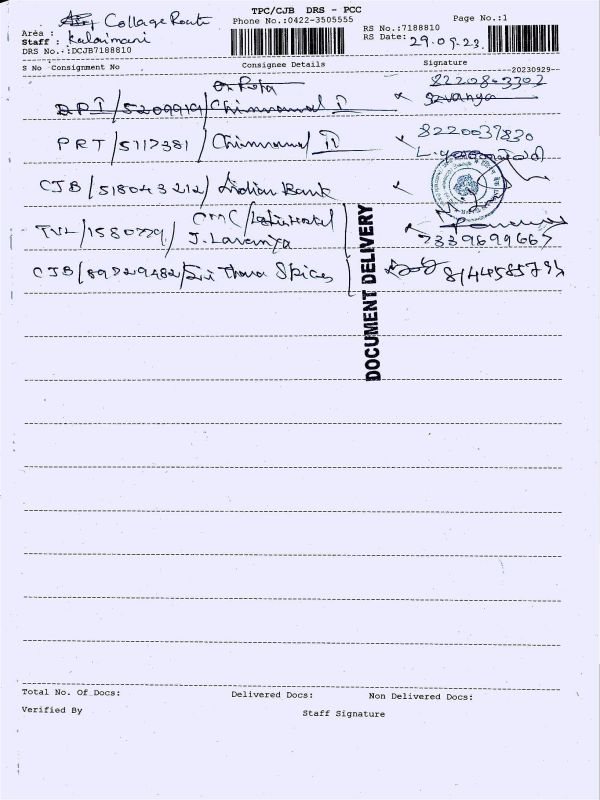 TPC/CJB DRS - PCC
Collage Route
Phone No.:0422-3505555
Page No.:1
Area :
RS No.:7188810
Staff : Kalaimani
RS Date: 29.09.23
DRS No.:DCJB7188810
S No Consignment No
Consignee Details
Signature
20230929
8220843302
DPI/5209919/Chinnamal I
PRT/5117381/Chinnamal II
8220037830
CJB/518043212/Indian Bank
CMC/
TVL/1580779/ J. Lavanya
7339699667
CJB/89729482/Sri Thara Spices
DOCUMENT DELIVERY
Total No. Of Docs:
Delivered Docs:
Non Delivered Docs:
Verified By
Staff Signature